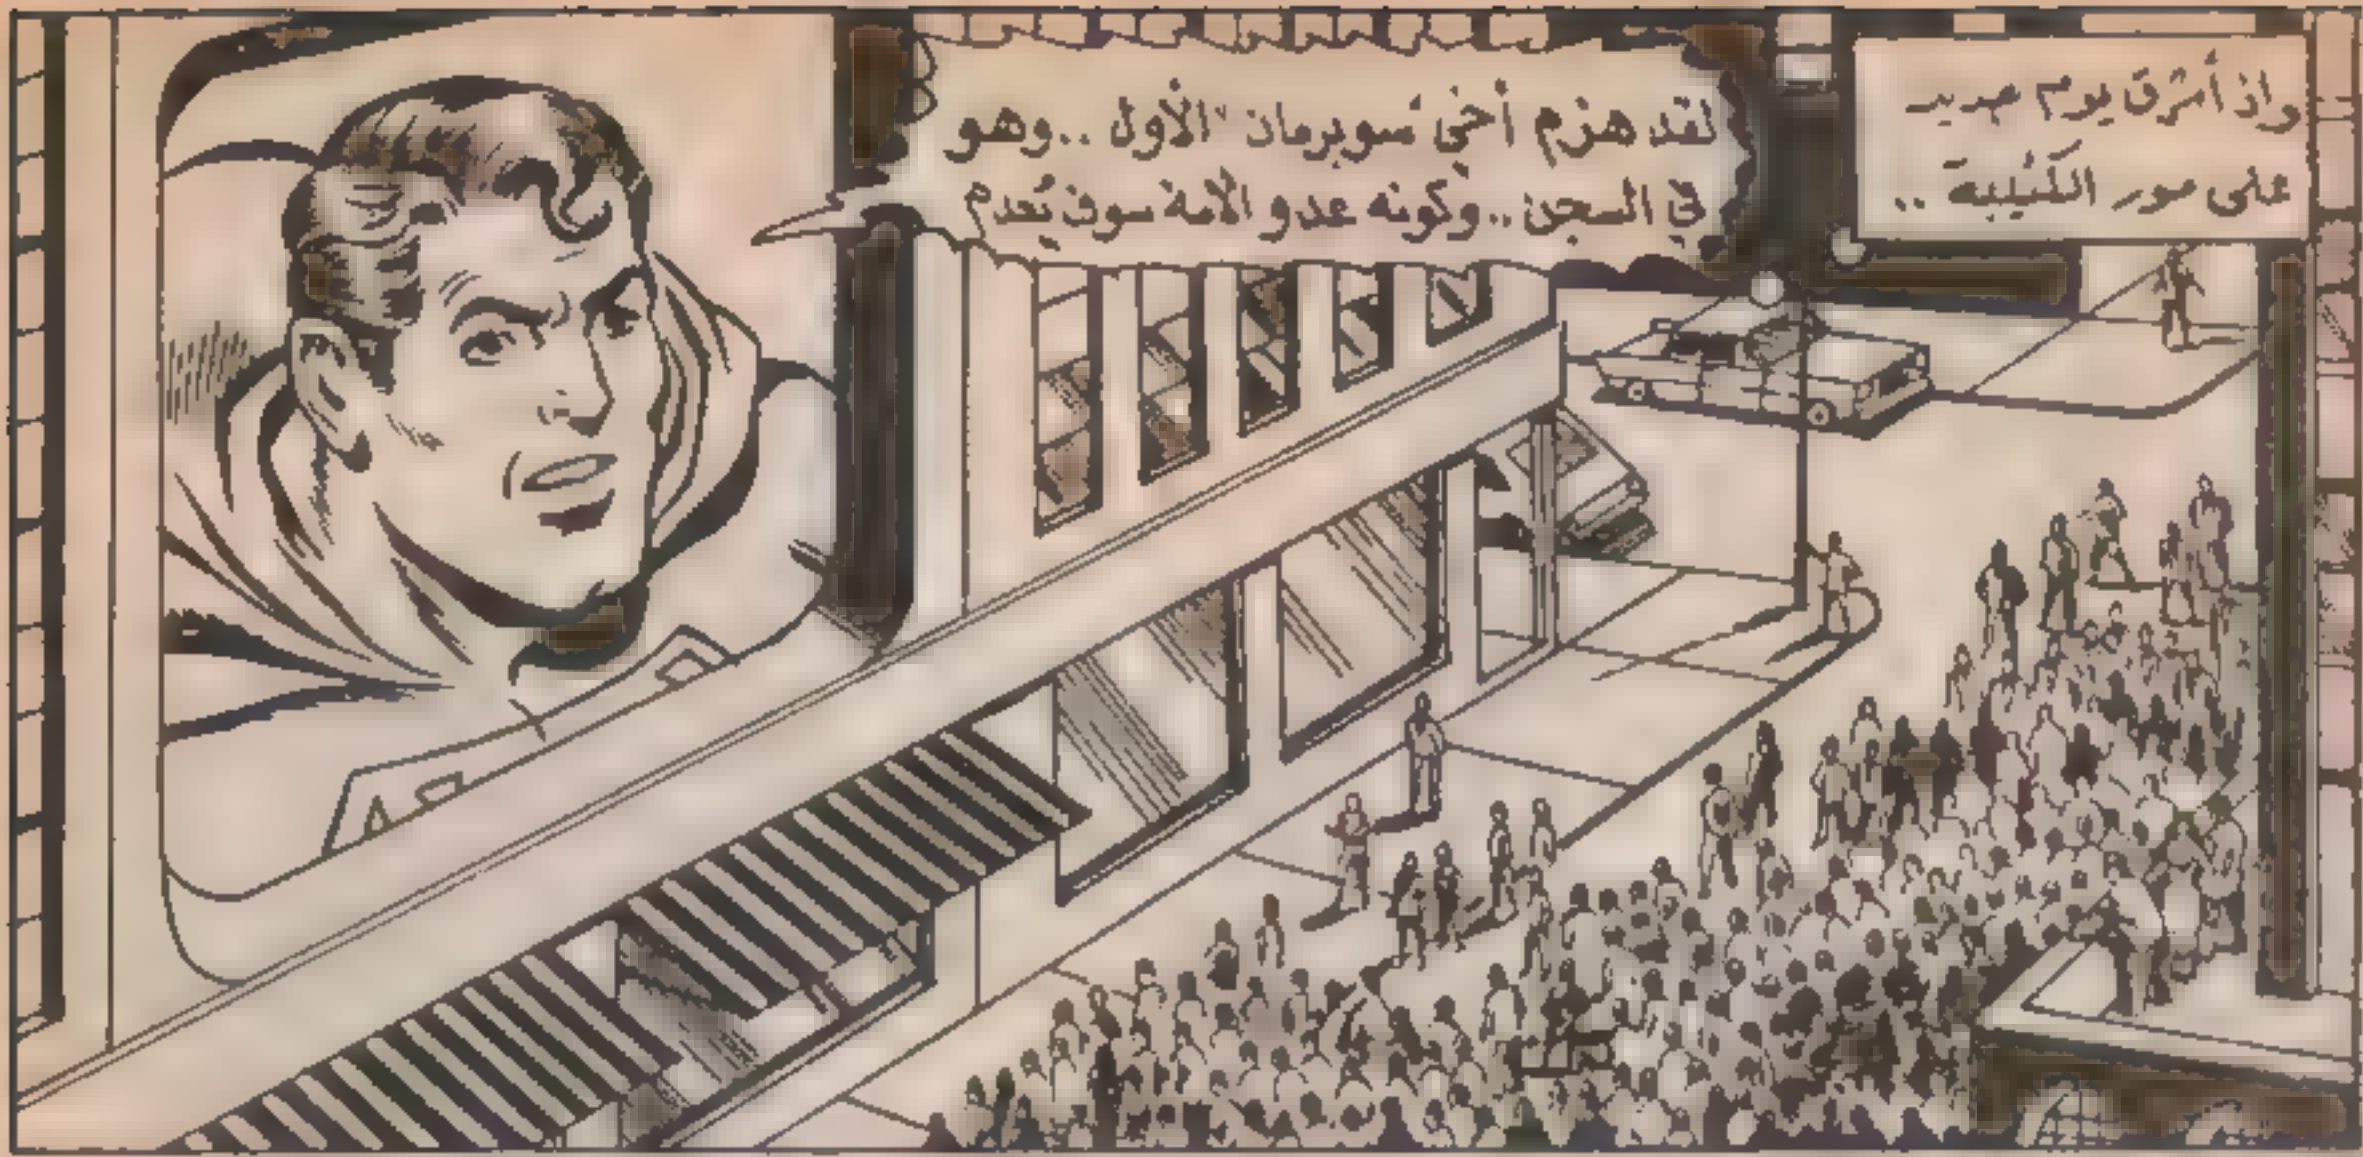 واذ أشرق يوم جديد
على سور الكئيبة ..
لقد هزم أخي سوبرمان الأول ..وهو
في السجن ..وكونه عدو الأمة سوف يُعدم